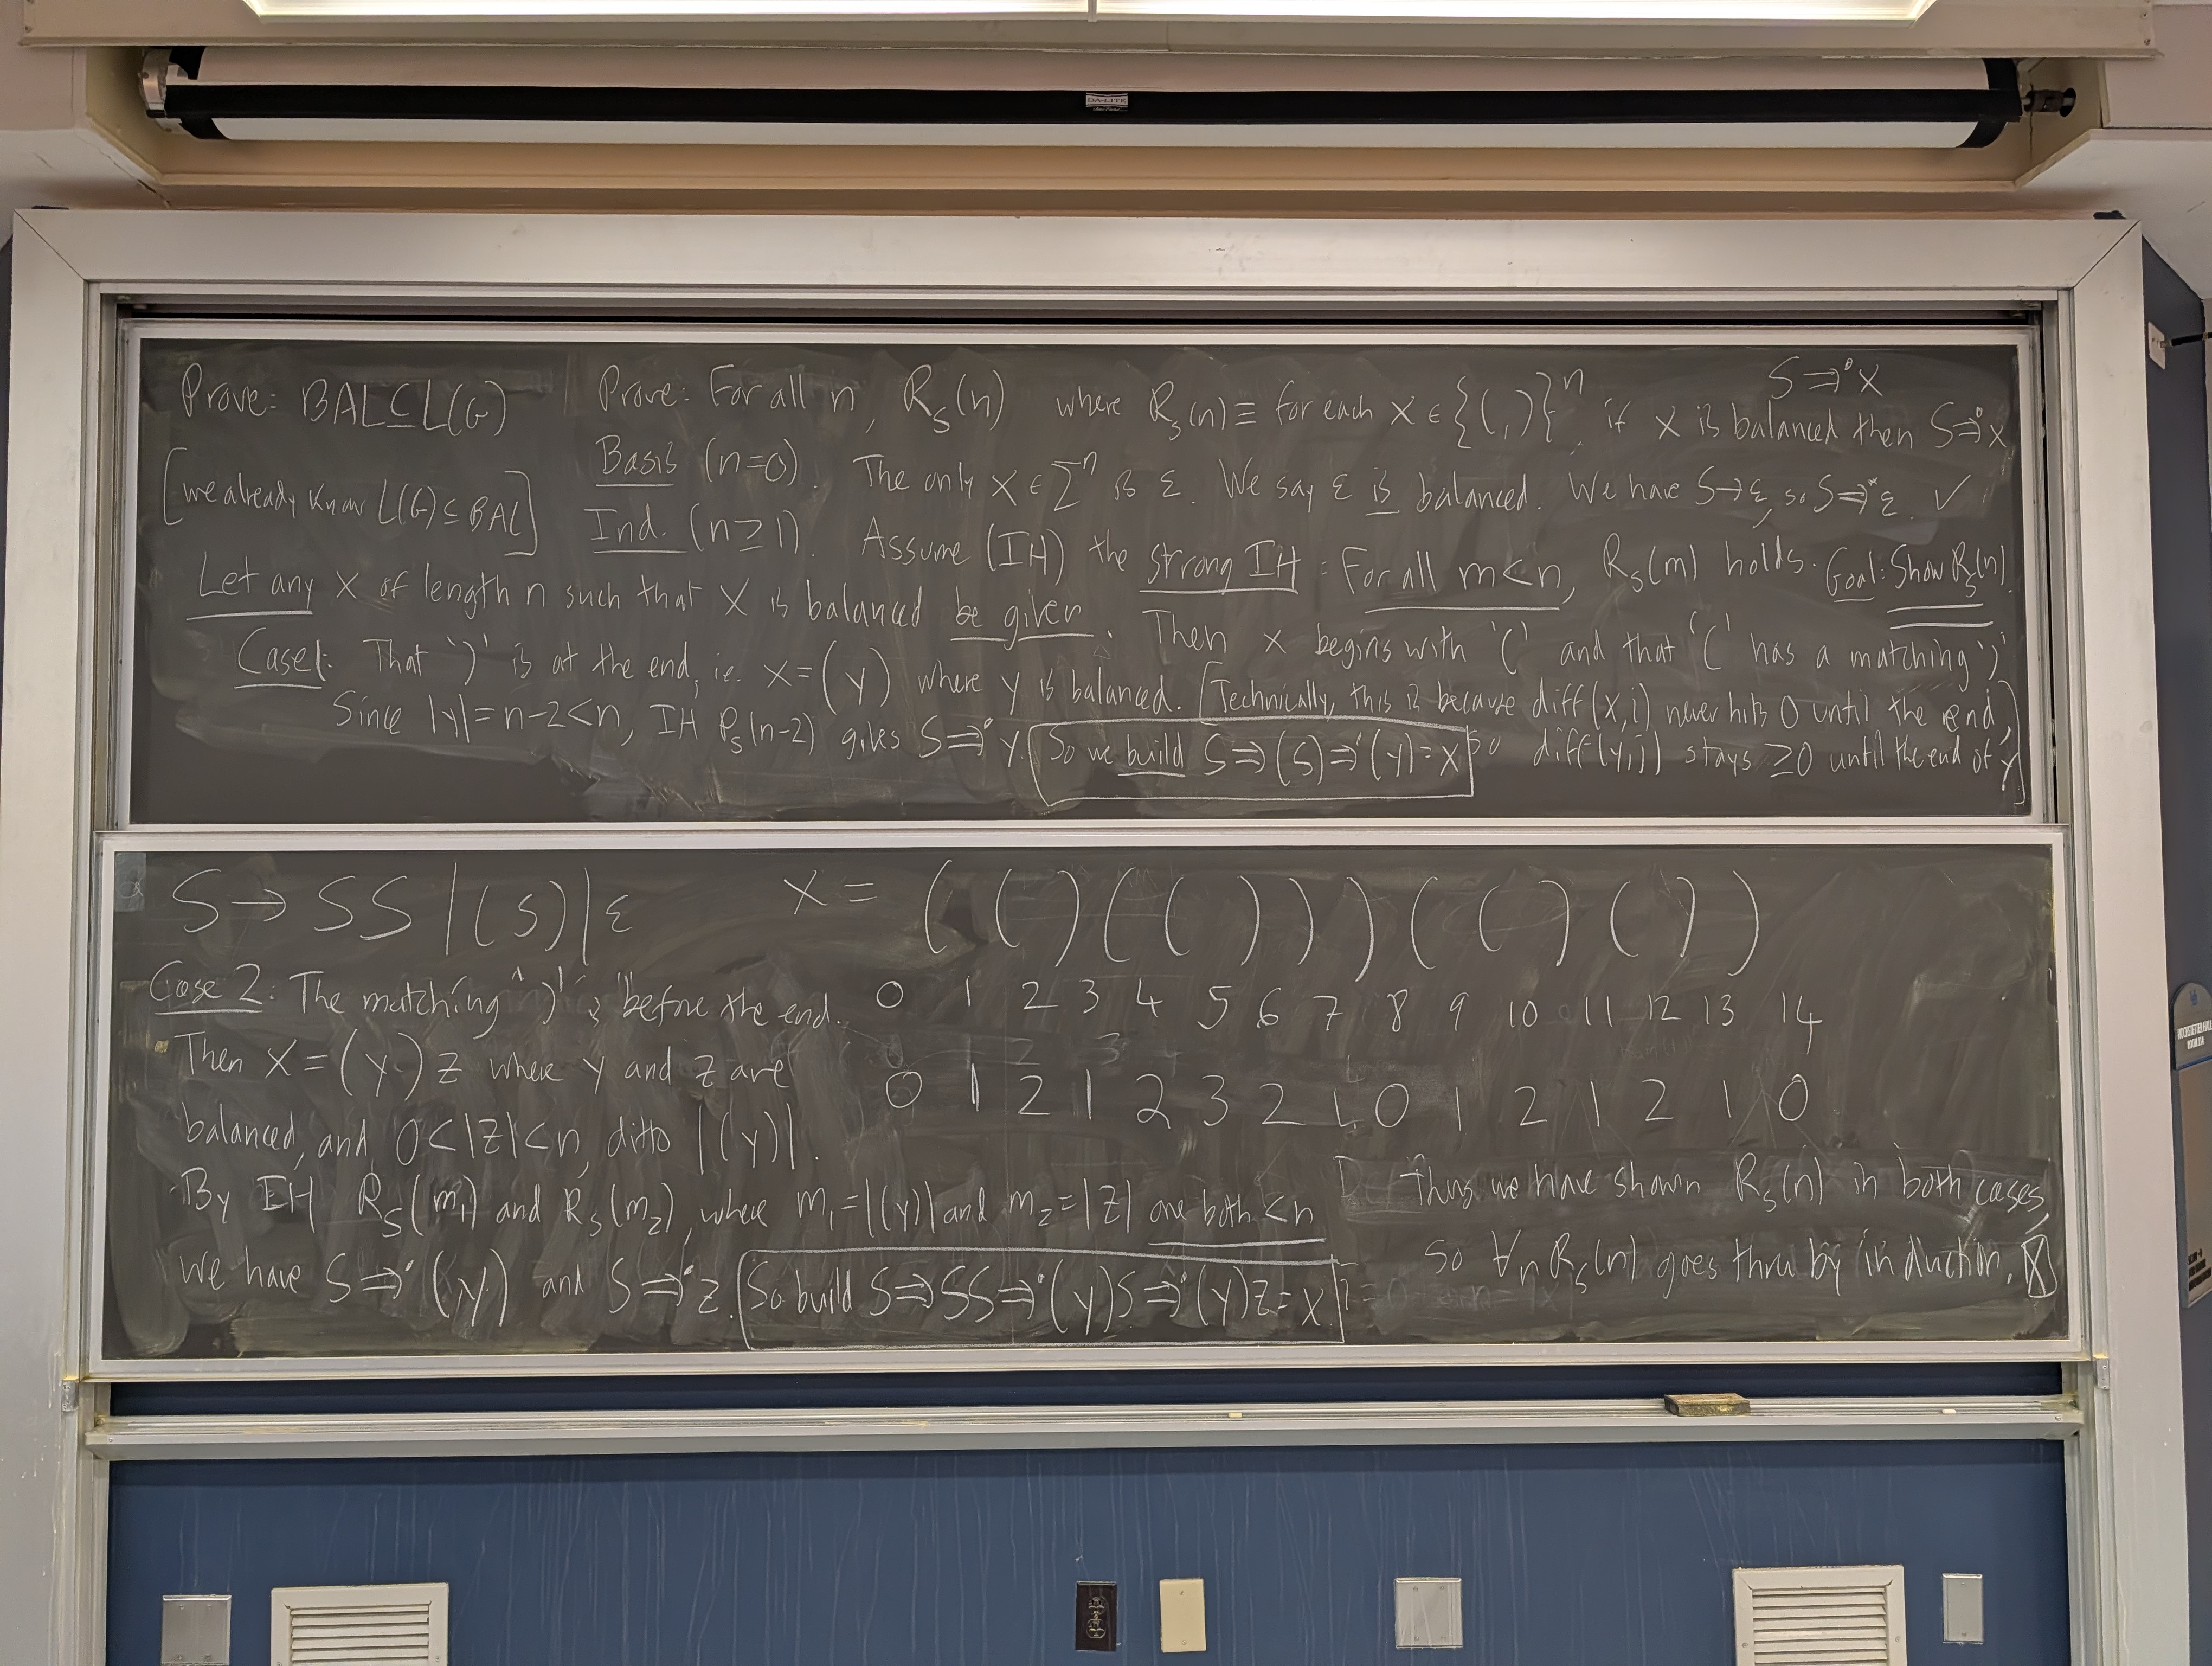 DA-LITE
Prove: BAL ⊆ L(G)
[we already know L(G) ⊆ BAL]
S ⇒* x
Prove: For all n, R_S(n) where R_S(n) ≡ for each x ∈ {(,)}^n, if x is balanced then S ⇒* x
Basis (n=0). The only x ∈ Σ^n is ε. We say ε is balanced. We have S → ε, so S ⇒* ε. ✓
Ind. (n ≥ 1). Assume (IH) the strong IH: For all m < n, R_S(m) holds. Goal: Show R_S(n).
Let any x of length n such that x is balanced be given. Then x begins with '(' and that '(' has a matching ')'
Case 1: That ')' is at the end, i.e. x = (y) where y is balanced. [Technically, this is because diff(x,i) never hits 0 until the end,
Since |y| = n-2 < n, IH P_S(n-2) gives S ⇒* y. So we build S ⇒ (S) ⇒* (y) = x so diff(y,j) stays ≥ 0 until the end of y]
S → SS | (S) | ε
x = ( ( ) ( ( ) ) ) ( ( ) ( ) )
0 1 2 3 4 5 6 7 8 9 10 11 12 13 14
0 1 2 1 2 3 2 1 0 1 2 1 2 1 0
Case 2: The matching ')' is before the end.
Then x = (y)z where y and z are
balanced, and 0 < |z| < n, ditto |(y)|.
By IH R_S(m₁) and R_S(m₂), where m₁ = |(y)| and m₂ = |z| are both < n
we have S ⇒* (y) and S ⇒* z. So build S ⇒ SS ⇒* (y)S ⇒* (y)z = x.
Thus we have shown R_S(n) in both cases,
so ∀n R_S(n) goes thru by induction. ☒